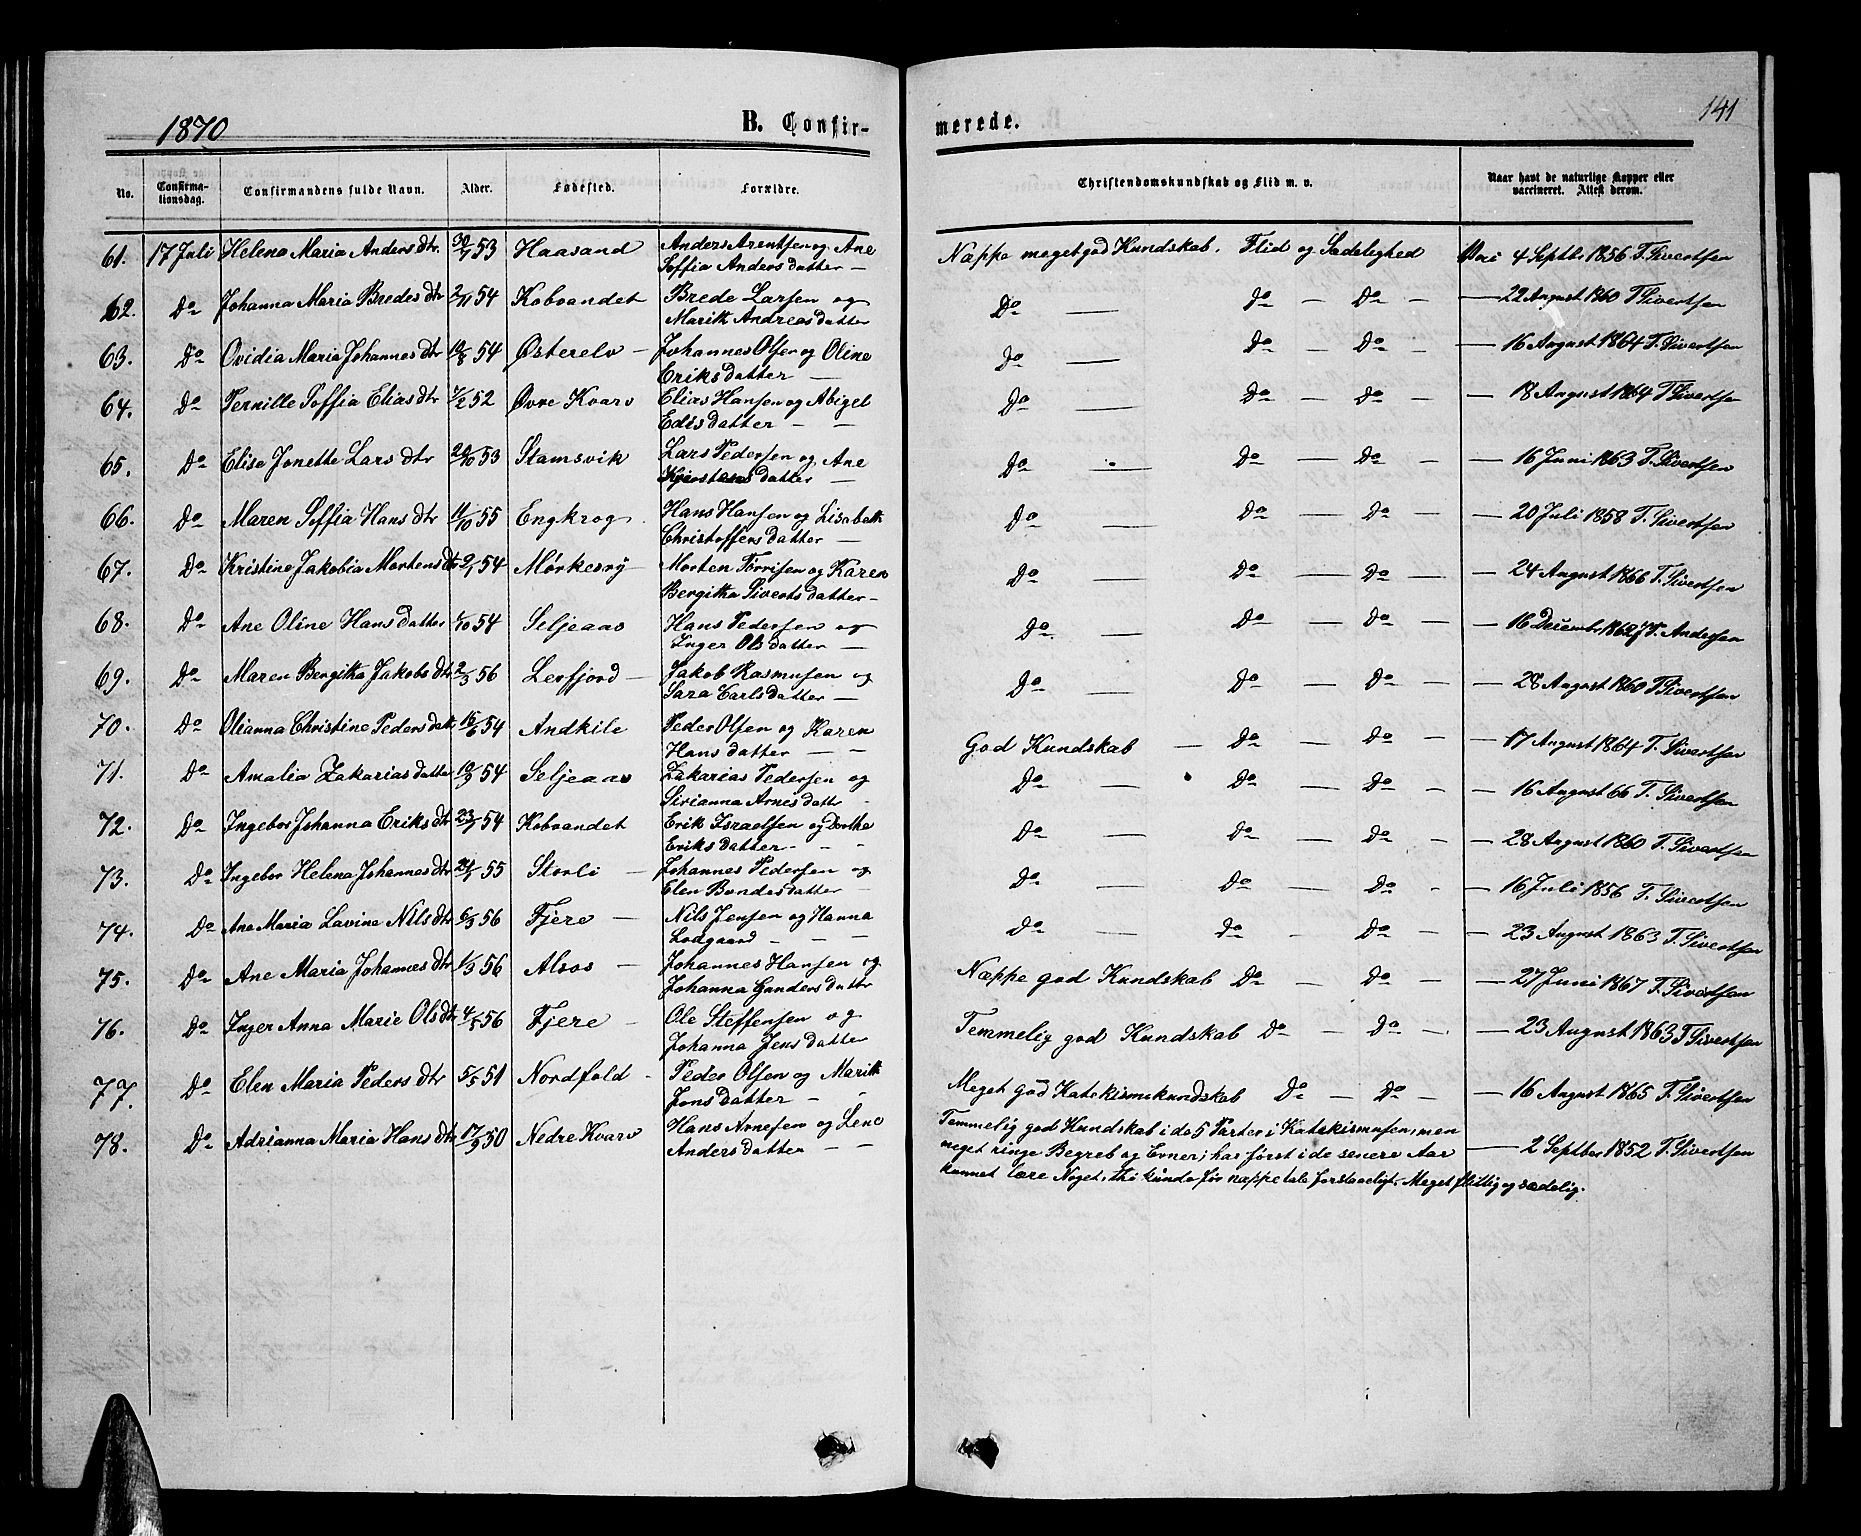 1870
B. Confir-
merede.
141
No. Confirma-tionsdag. Confirmandens fulde Navn. Alder. Fødested. Forældre. Christendomskundskab og Flid m. v. Naar havt de naturlige Kopper eller vaccineret. Attest derom.
61. 17 Juli Helena Maria Anders dtr. 30/7 53 Haasand Anders Arentsen og Ane Næppe meget god Kundskab. Flid og Sædelighed 4 Septbr 1856 T. Sivertsen
Soffia Anders datter —
62. Do Johanna Maria Bredes dtr 2/11 54 Kobvandet Brede Larsen og Do — Do — Do — — 22 August 1860 T Sivertsen
Marith Andreas datter
63. Do Ovidia Maria Johannes dtr 10/8 54 Østerelv — Johannes Olsen og Oline Do — Do — Do — — 16 August 1864 T. Sivertsen
Eriks datter —
64. Do Pernille Soffia Elias dtr 7/2 52 Øvre Kvarv Elias Hansen og Abigel Do — Do — Do — — 18 August 1864 T Sivertsen
Edis datter — —
65. Do Elise Jonette Lars dtr 20/10 53 Stamsvik Lars Pedersen og Ane Do — Do — Do — — 16 Juni 1863 T. Sivertsen
datter —
66. Do Maren Soffia Hans dtr 11/10 55 Engkrog Hans Hansen og Lisabeth Do — Do — Do — — 20 Juli 1858 T. Sivertsen
Christoffers datter —
67. Do Kristine Jakobia Mortens dtr 2/1 54 Mørkesvij Morten Torrisen og Karen Do — Do — Do — — 24 August 1866 T. Sivertsen
Bergitha Siverts datter —
68. Do Ane Oline Hans datter /10 54 Seljeaas Hans Pedersen og Do — Do — Do — — 16 December 1862 Andersen
Inger Ols datter —
69. Do Maren Bergitha Jakobs dtr 2/3 56 Lerfjord — Jakob Rasmusen og Do — Do — Do — — 28 August 1860 T Sivertsen
Sara Carls datter —
70. Do Olianna Christine Peders datt 15/6 54 Andkile Peder Olsen og Karen God Kundskab — Do — Do — — 17 August 1864 T. Sivertsen
Hans datter — —
71. Do Amalia Zakarias datter 10/9 54 Seljeaas Zakarias Pedersen og Do — Do — Do — — 16 August 66 T. Sivertsen
Sirianna Arnes datter
72. Do Ingebor Johanna Eriks dtr 23/7 54 Kobvandet Erik Israelsen og Dorthe Do — Do — Do — — 28 August 1860 T. Sivertsen
Eriks datter — — —
73. Do Ingebor Helena Johannes dtr 24/1 55 Storli — Johannes Pedersen og Do — Do — Do — — 16 Juli 1856 T. Sivertsen
Elen Bundes datter —
74. Do Ane Maria Lavine Nils dtr 6/3 56 Fjere — Nils Jensen og Hanna Do — Do — Do — — 23 August 1863 T. Sivertsen
Lodgaard — — —
75. Do Ane Maria Johannes dtr 1/3 56 Alsos — Johannes Hansen og Næppe god Kundskab Do — Do — — 27 Juni 1867 T. Sivertsen
Johanna Gunders datter
76. Do Inger Anna Marie Ols dtr 4/5 56 Fjere — Ole Steffensen og Temmelig god Kundskab Do — Do — — 23 August 1863 T Sivertsen
Johanna Jens datter
77. Do Elen Maria Peders dtr 5/5 51 Nordfold — Peder Olsen og Marith Meget God Katekismekundskab Do — Do — — 16 August 1865 T. Sivertsen
Jons datter — —
78. Do Adrianna Maria Hans dtr 17/9 50 Nedre Kvarv Hans Arnesen og Lene Temmelig god Kundskab i de 5 Parter i Katekismusen, men — 2 Septbr 1852 T. Sivertsen
Anders datter — meget ringe Begreb og Evner; har først i de senere Aar
kunnet lære Noget, thi kunde før næppe tale forstaaeligt. Meget flittig og sædelig.